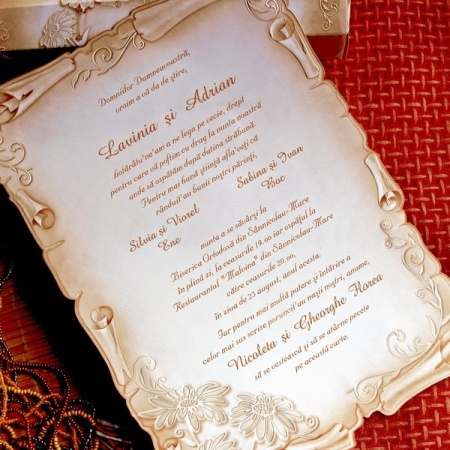 Domniilor Dumneavoastră,
vroim a vă da de ştire,
Lavinia şi Adrian
hotărân'ne'am a ne lega pe vecie, drept
pentru care vă poftim cu drag la nunta noastră
unde să ospătăm după datina străbună.
Pentru mai bună ştiinţă afla'veţi că
rânduit'au bunii noştri părinţi,
Silvia şi Viorel
Ene
Sabina şi Ivan
Boc
nunta a se săvârşi la
Biserica Ortodoxă din Sânnicolau-Mare
în plină zi, la ceasurile 19.00 iar ospăţul la
Restaurantul "Malvina" din Sânnicolau-Mare
către ceasurile 20.00,
în ziua de 23 august, anul acesta.
Iar pentru mai multă putere şi întărire a
celor mai sus scrise poruncit'au naşii noştri, anume,
Nicoleta şi Gheorghe Horea
să se vestească şi să se atârne pecete
pe această carte.